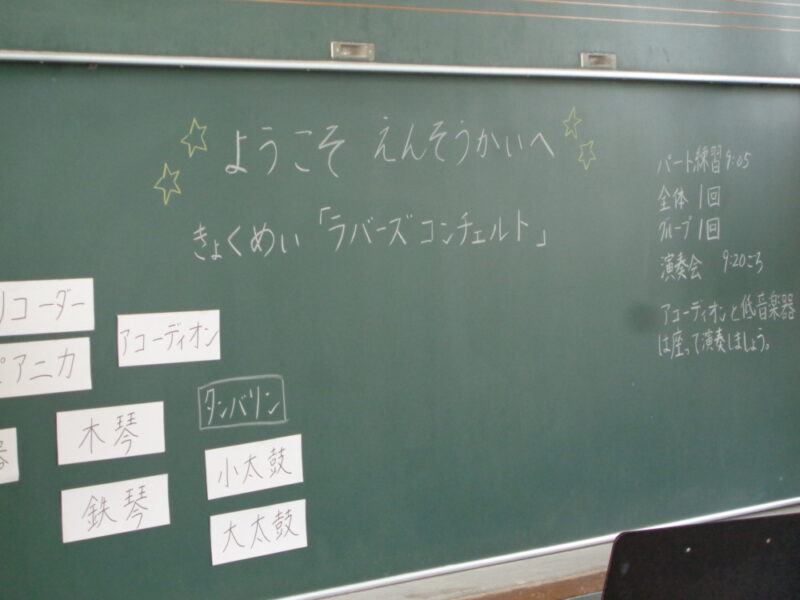 ようこそ えんそうかいへ
きょくめい「ラバーズ コンチェルト」
パート練習 9:05
全体 1回
グループ 1回
演奏会 9:20ごろ
アコーディオンと低音楽器
は座って演奏しましょう。
リコーダー
ピアニカ
アコーディオン
タンバリン
木琴
鉄琴
小太鼓
大太鼓
器